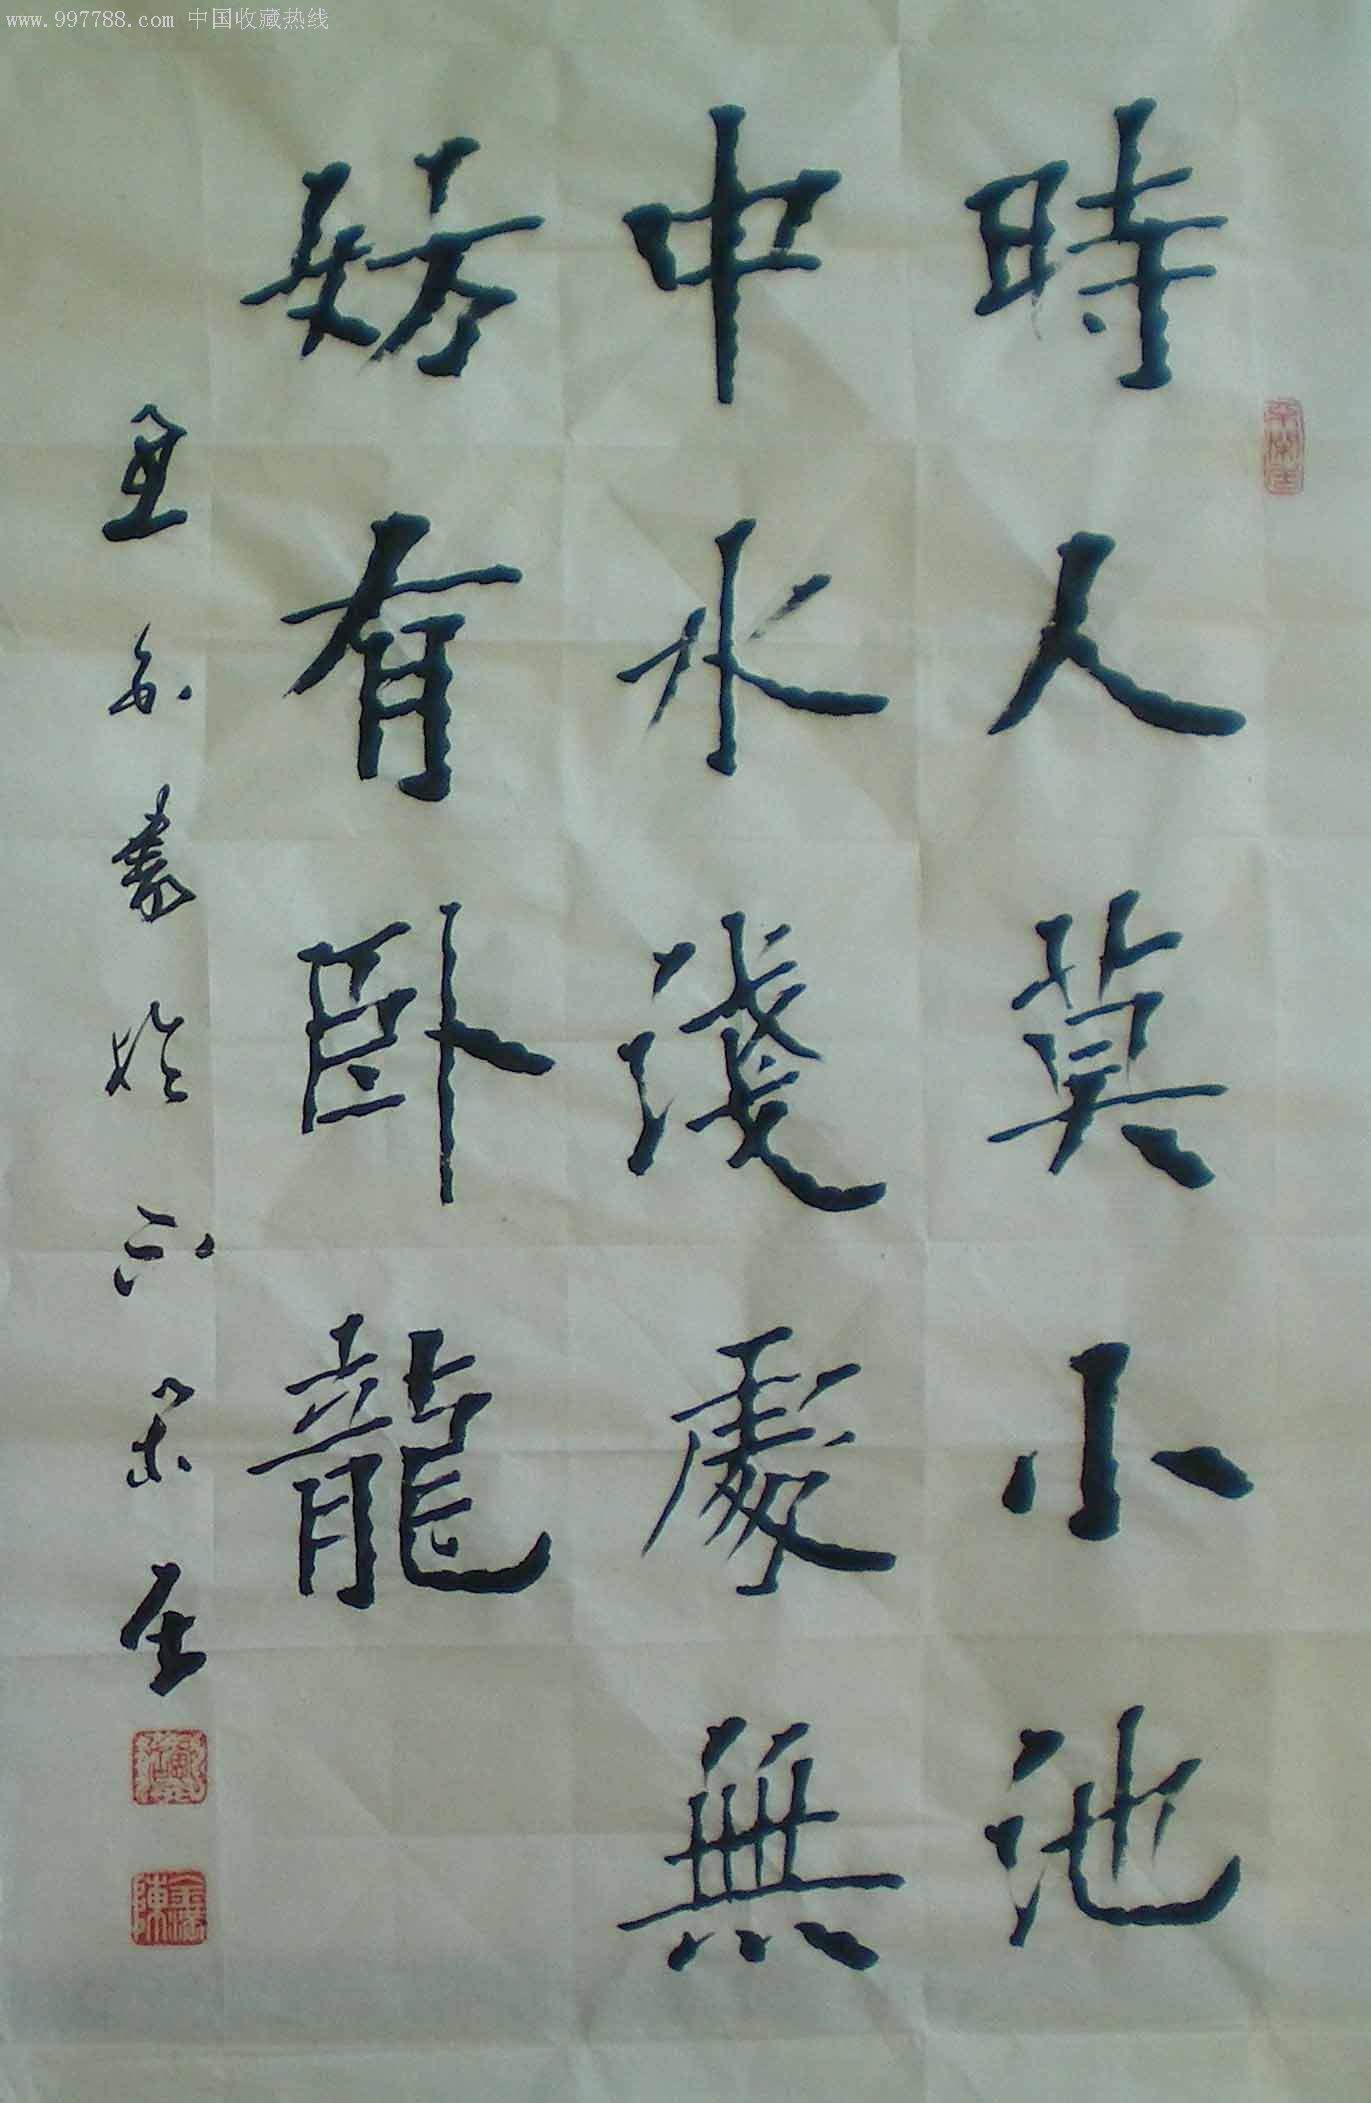 www.997788.com 中国收藏热线
時人莫小池
中水淺處無
妨有卧龍
書於不